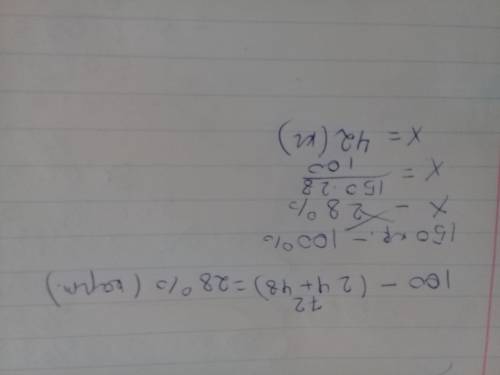 72
100 - (24+48) = 28% (карт.)
150 кг. - 100%
x - 28%
x = 150·28
100
x = 42 (кг)